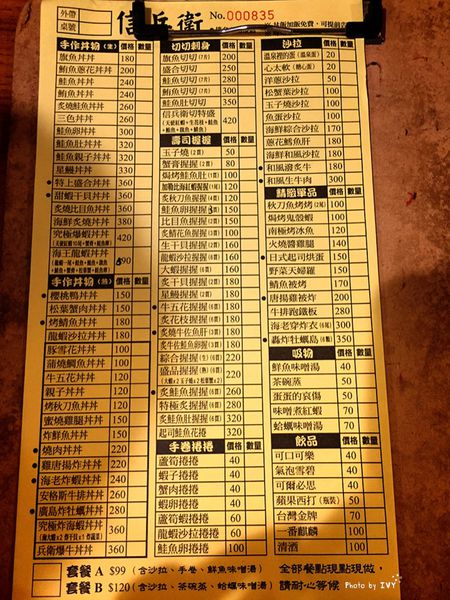 外帶
桌號
信兵衛
No. 000835
手作丼物(生) 價格 數量
旗魚丼丼 180
鮪魚蔥花丼丼 200
鮭魚丼丼 240
鮪魚丼丼 240
炙燒鮭魚丼丼 260
三色丼丼 260
鮭魚卵丼丼 300
鮭魚肚丼丼 320
鮭魚親子丼丼 320
星鰻丼丼 330
特上盛合丼丼 360
甜蝦干貝丼丼 360
炙燒比目魚丼丼 360
海鮮炙燒丼丼 380
究極爆蝦丼丼 420
海王龍蝦丼丼
手作丼物(熟) 價格 數量
櫻桃鴨丼丼 150
松葉蟹肉丼丼 150
烤鯖魚丼丼 180
龍蝦沙拉丼丼 180
豚雪花丼丼 200
蒲燒鯛魚丼丼 200
牛五花丼丼 200
親子丼丼 200
烤秋刀魚丼丼 200
蜜燒雞腿丼丼 200
炸鮮魚丼丼 200
燒肉丼丼 220
雞唐揚炸丼丼 220
海老炸蝦丼丼 240
安格斯牛排丼丼 260
廣島炸牡蠣丼丼 260
究極炸海蝦丼丼 320
兵衛爆牛丼丼 340
切切刺身 價格 數量
旗魚切切(7片) 200
盛合切切 250
鮭魚切切(7片) 280
鮪魚切切(7片) 300
鮭魚肚切切 350
信兵衛切特盛 420
壽司握握 價格 數量
玉子燒(2貫) 50
蟹膏握握(2貫) 80
焗烤鮭魚肚(1貫) 100
加勒比海紅蝦握握(1貫) 120
炙秋刀握握(2貫) 120
鮭魚卵握握 150
炙比目魚握握 150
炙鯖花握握 150
生干貝握握 160
龍蝦沙拉握握 160
大蝦握握 180
炙干貝握握 180
星鰻握握 180
牛五花握握 200
炙花枝握握 180
炙燒牛佐魚肝 180
炙牛佐鮭魚卵 180
綜合握握 220
盛品握握 220
炙鮭魚握握 260
特極炙握握 280
鮭魚肚握握 320
起司鮭魚花握 320
手卷捲捲 價格 數量
蘆筍捲捲 40
蝦子捲捲 40
蟹肉捲捲 40
蝦卵捲捲 40
蘆筍蝦捲捲 60
龍蝦沙拉捲捲 60
鮭魚卵捲捲 100
沙拉 價格 數量
溫泉裡的蛋(溫泉蛋) 20
心太軟(糖心蛋) 20
洋蔥沙拉 50
松蟹葉沙拉 100
玉子燒沙拉 100
魚蛋沙拉 100
海鮮綜合沙拉 170
蔥花鱈魚肝 180
海鮮和風沙拉 180
和風溫灸牛 180
和風生牛肉 300
精緻單品 價格 數量
秋刀魚烤烤 100
焗烤鬼殼蝦 100
南極烤冰魚 120
火燒醬雞腿 120
日式起司烘蛋 150
野菜天婦羅 150
鯖魚被烤 170
唐揚雞被炸 200
牛排跑鐵板 280
海老穿炸衣 300
轟炸牡蠣島 350
吸物 價格 數量
鮮魚味噌湯 30
茶碗蒸 50
蛋蛋的哀傷 50
味噌煮紅蝦 70
蛤蠣味噌湯 70
飲品 價格 數量
可口可樂 40
氣泡雪碧 40
可爾必思 40
蘋果西打(瓶裝) 50
台灣金牌 70
一番麒麟 100
清酒 100
套餐 A $99 (含沙拉、手卷、鮮魚味噌湯)
套餐 B $120 (含沙拉、茶碗蒸、蛤蠣味噌湯)
全部餐點現點現做,
請耐心等候
Photo by IVY